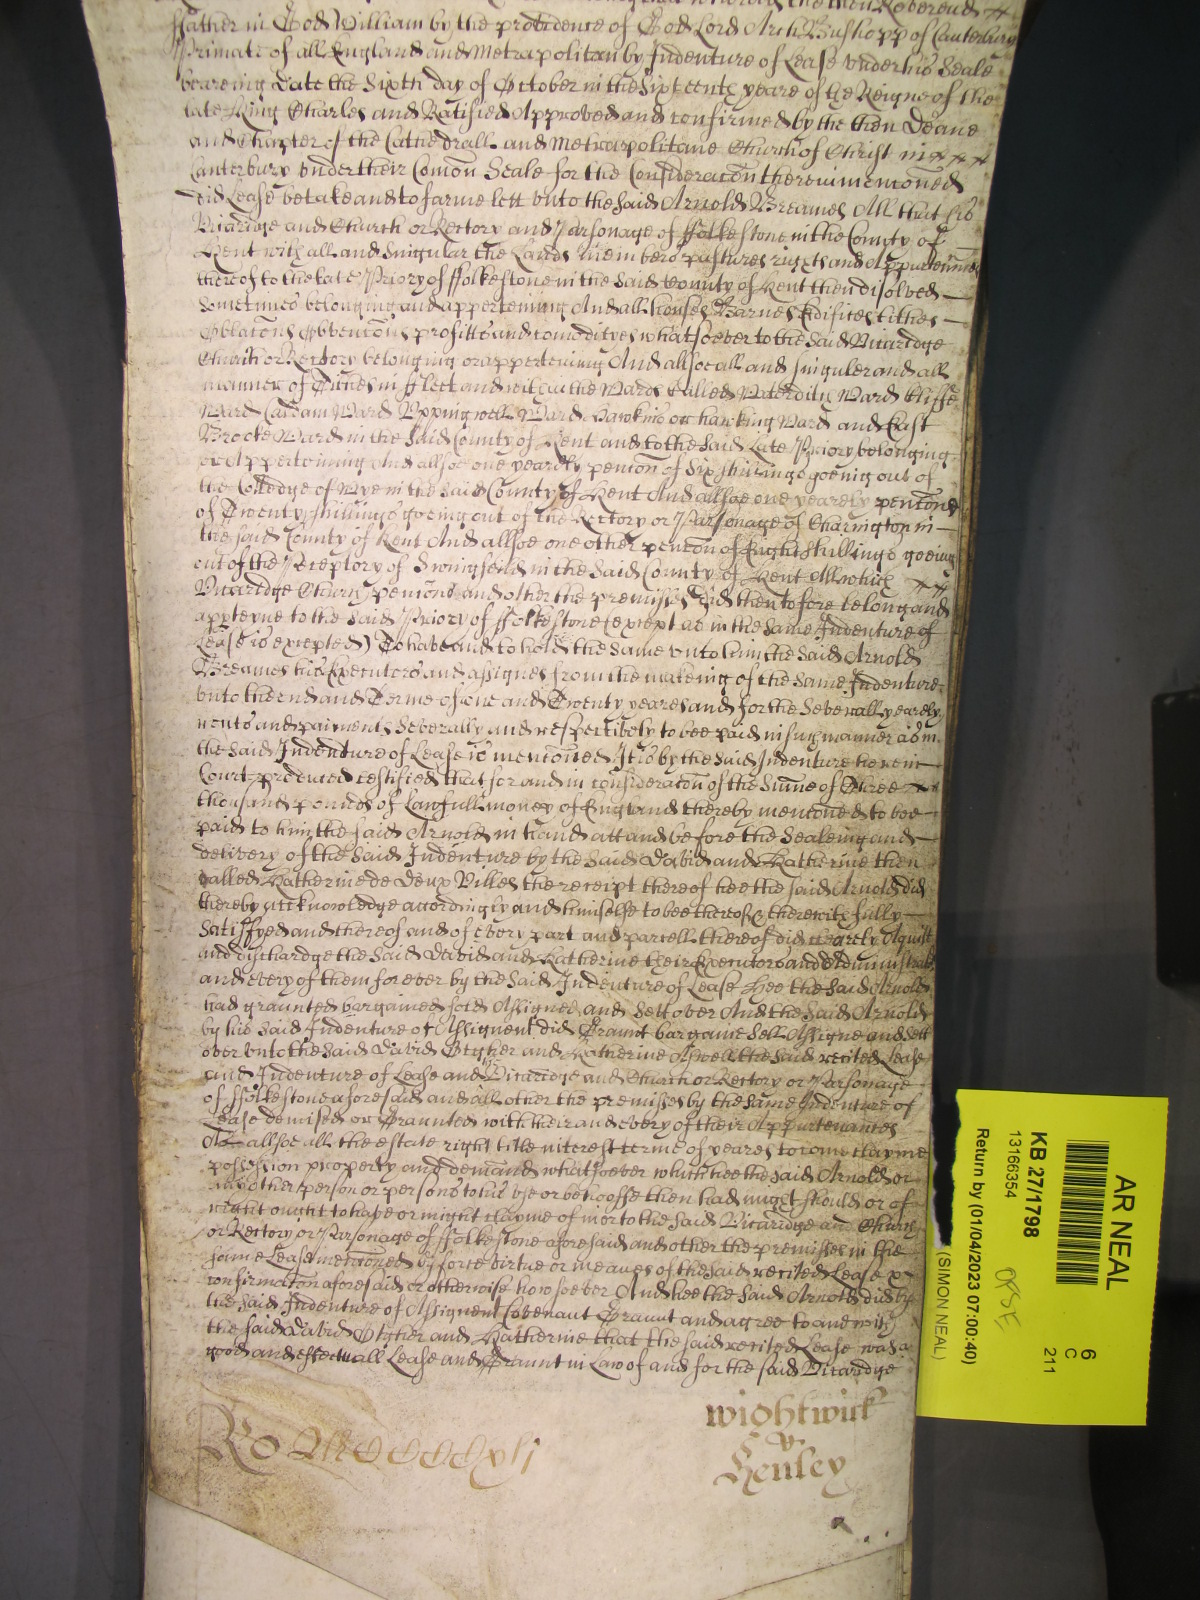 the then Reverend
ffather in God William by the providence of God Lord Arch Bushopp of Canterbury
Primate of all England and Metrapolitan by Indenture of Lease vnder his Seale
beareing date the Sixth day of October in the sixteenth yeare of the Reigne of the
late King Charles and Ratified Approved and confirmed by the then Deane
and Chapter of the Cathedrall and Metrapolitane Church of Christ in
Canterbury vnder their Comon Seale for the Consideracon therein menconed
did Lease betake and to farme lett vnto the said Arnold Breames All that his
Vicaridge and Church or Rectory and Parsonage of ffolkestone in the County of
Kent with all and Singular the Lands members pastures rights and Appurtennces
thereof to the late Priory of ffolkestone in the said County of Kent then disolved
Sometimes belonging and apperteining And all houses Barnes Edifices tithes
Oblacons Obvencons profitts and comodityes whatsoever to the said Vicaridge
Church or Rectory belonging or apperteining And allsoe all and singuler and all
manner of Tithes in fflect and within the Wards Called Ward Cliffe
Ward Ward Ward Hawkins or hawking Ward and East
Brooke Ward in the said County of Kent and to the said Late Priory belonging
or Apperteining And allsoe one yearely pencon of Six shillings goeing out of
the Colledge of Wye in the said County of Kent And allsoe one yearely pencone
of Twenty shillings goeing out of the Rectory or Parsonage of Charington in
the said County of Kent And allsoe one other pencon of Eight shillings goeing
out of the Preptory of Swingfeild in the said County of Kent All which
Vicaridge Church pencons and other the premisses did then tofore belong and
apperteyne to the said Priory of ffolkestone (except as in the same Indenture of
Lease is excepted) To have and to hold the same vnto him the said Arnold
Breames his Executors and assignes from the makeing of the same Indenture
vnto the end and Terme of one and Twenty yeares and for the Severall yearely
rents and paiments Severally and respectively to bee paid in such manner as in
the said Indenture of Lease is menconed It is by the said Indenture here in
Court produced testified that for and in consideracon of the Sume of Three
thousand pounds of Lawfull money of England thereby menconed to bee
paid to him the said Arnold in hand att and before the Sealeing and
delivery of the said Indenture by the said David and Katherine then
called Katherine de Deux Villes the receipt thereof hee the said Arnold did
thereby acknowledge accordingly and himselfe to bee thereof & therewith fully
Satisfyed and thereof and of every part and parcell thereof did clearely Aquitt
and discharge the said David and Katherine their Executors and Administrators
and every of them for ever by the said Indenture of Lease Hee the said Arnold
had graunted bargained sold Assigned and Sett over And the said Arnold
by his said Indenture of Assignemt did Graunt bargaine Sell Assigne and Sett
over vnto the said David Otgher and Katherine Aswell the said recited Lease
and Indenture of Lease and Vicaridge and Church or Rectory or Parsonage
of ffolkestone aforesaid and all other the premisses by the same Indenture of
Lease demised or Graunted with their and every of their Appurtenances
As allsoe all the estate right title interest terme of yeares to come clayme
possession property and demand whatsoever which hee the said Arnold or
any other person or persons to his vse or behooffe then had might should or of
right ought to have or might clayme of in or to the said Vicaridge and Church
or Rectory or Parsonage of ffolkestone aforesaid and other the premisses in the
same Lease menconed by force virtue or meanes of the said recited Lease or
confirmacon aforesaid or otherwise howsoever And hee the said Arnold did by
the said Indenture of Assignemt Covenant Graunt and agree to and with
the said David Otgher and Katherine that the said recited Lease was a
good and effectuall Lease and Graunt in Law of and for the said Vicaridge
wightwick
v
Henley
AR NEAL
6
C
211
KB 27/1798
13166354
Return by (01/04/2023 07:00:40)
(SIMON NEAL)